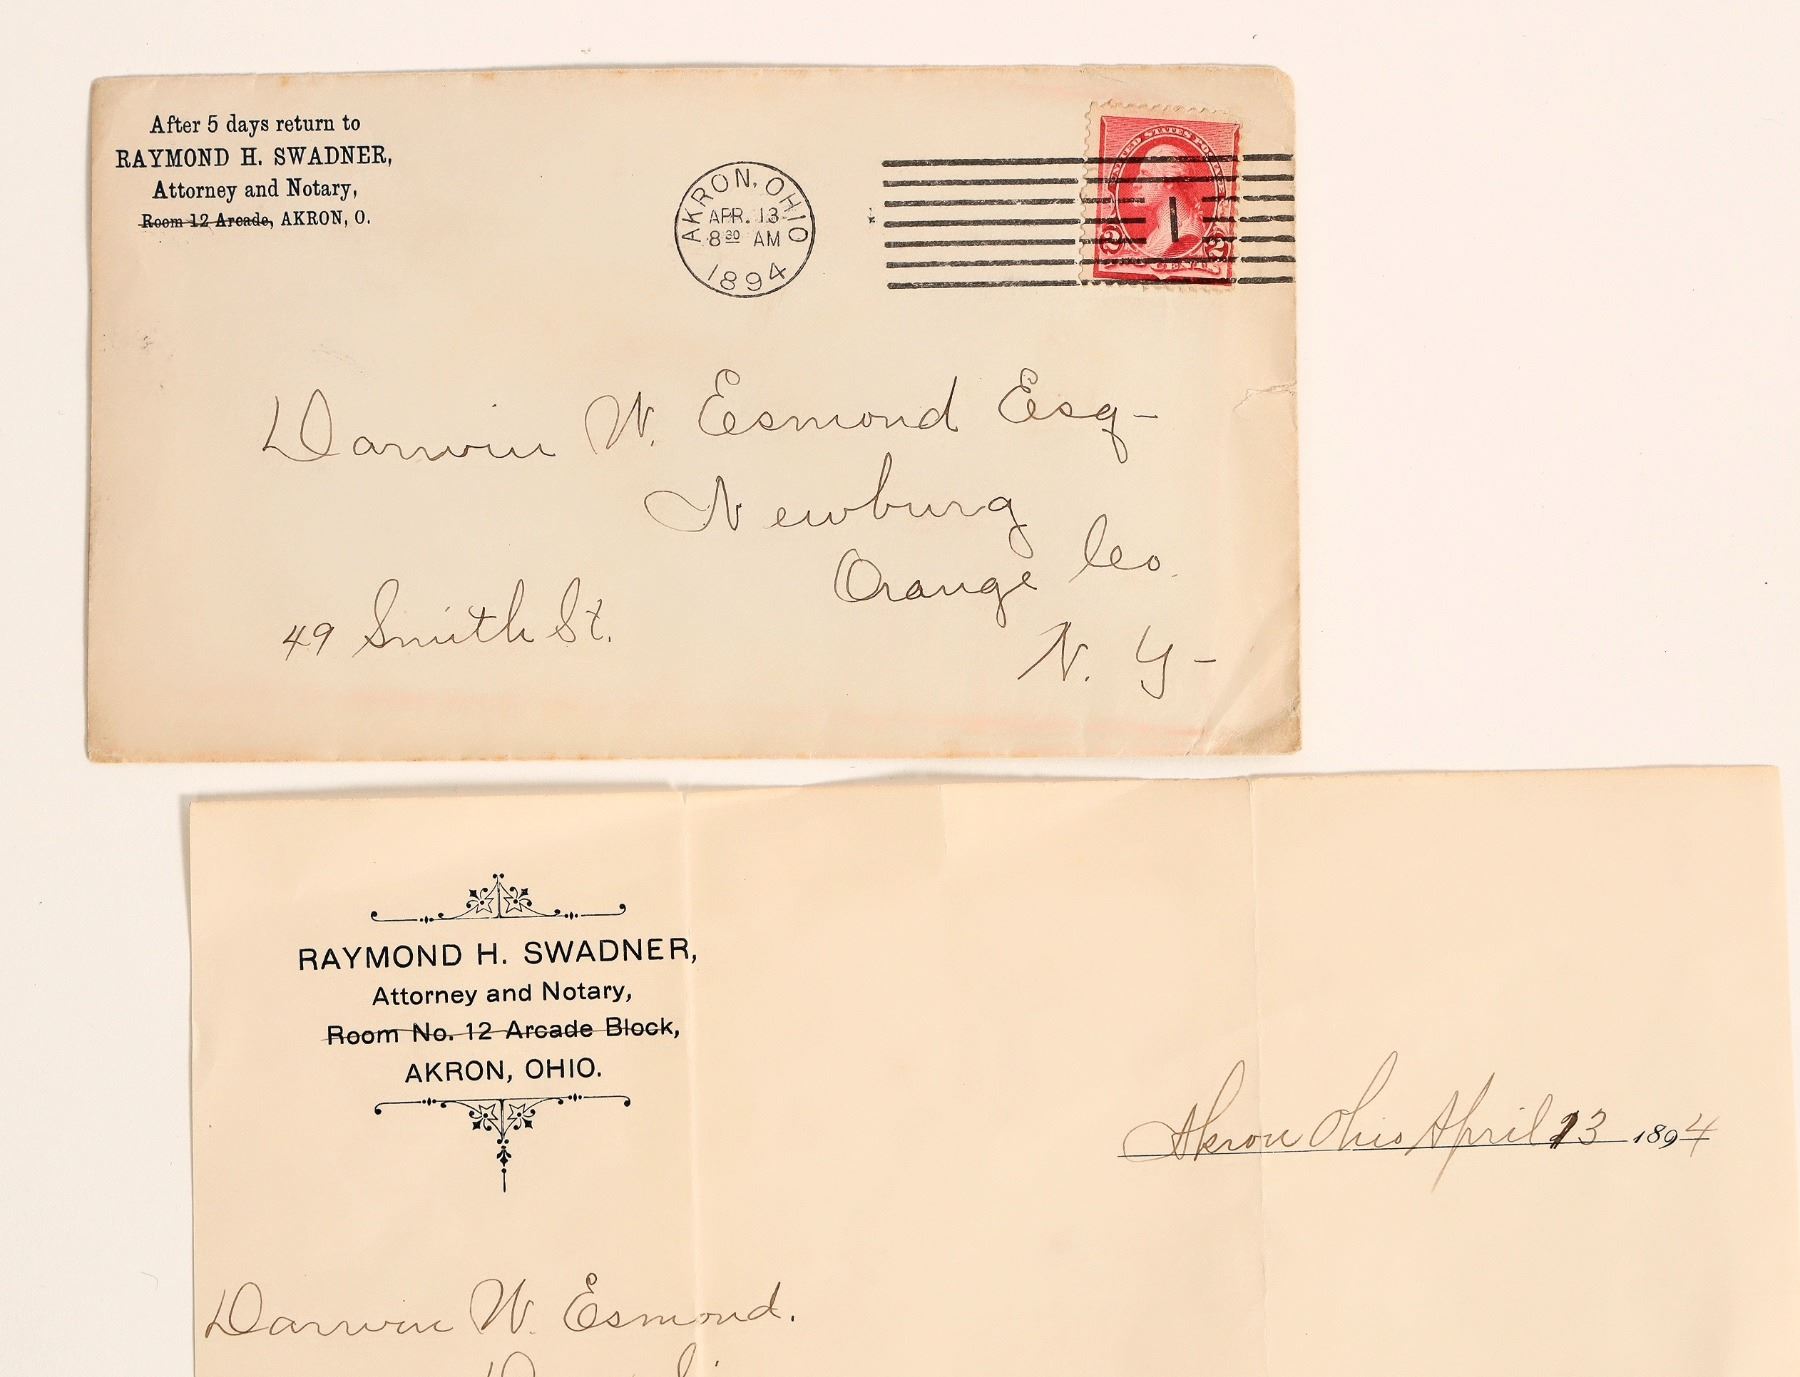 After 5 days return to
RAYMOND H. SWADNER,
Attorney and Notary,
Room 12 Arcade, AKRON, O.
AKRON, OHIO
APR. 13
8 30 AM
1894
UNITED STATES POSTAGE
1
2 CENTS 2
Darwin W. Esmond Esq-
Newburg
Orange Co.
49 Smith St.
N. Y-
RAYMOND H. SWADNER,
Attorney and Notary,
Room No. 12 Arcade Block,
AKRON, OHIO.
Akron Ohio April 13 1894
Darwin W. Esmond.